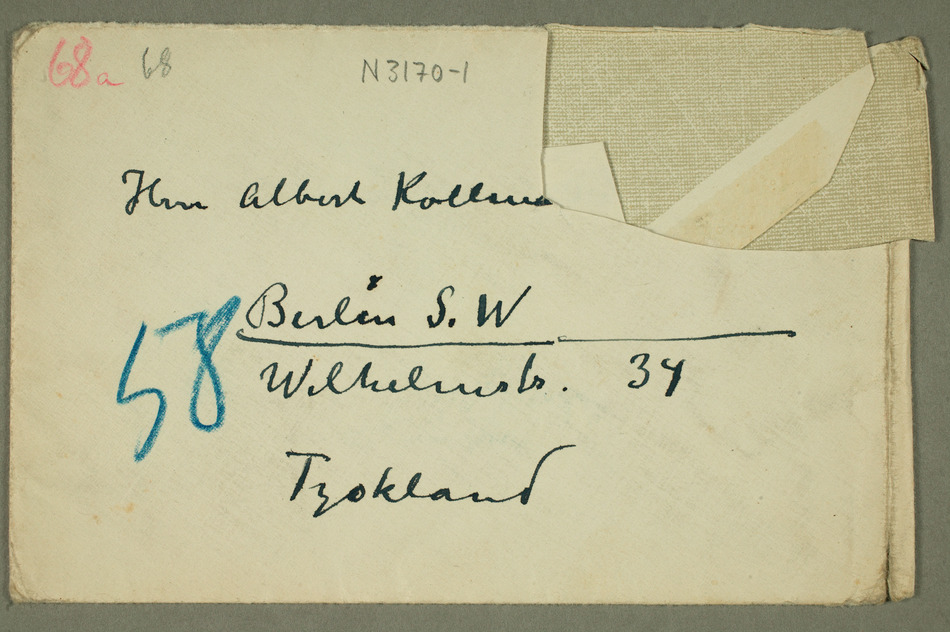 68a 68 N3170-1
Herrn Albert Kollma
Berlin S. W
58
Wilhelmstr. 34
Tyskland